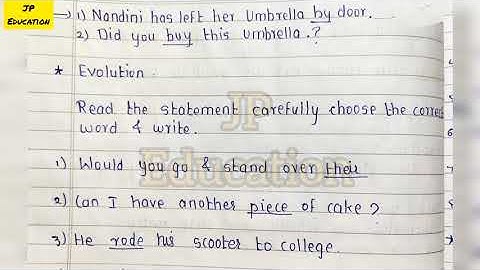 JP
EDUCATION
→ 1) Nandini has left her Umbrella by door.
2) Did you buy this umbrella.?
* Evolution
Read the statement carefully choose the correct
word & write.
JP
Education
1) Would you go & stand over their
2) Can I have another piece of cake?
3) He rode his scooter to college.